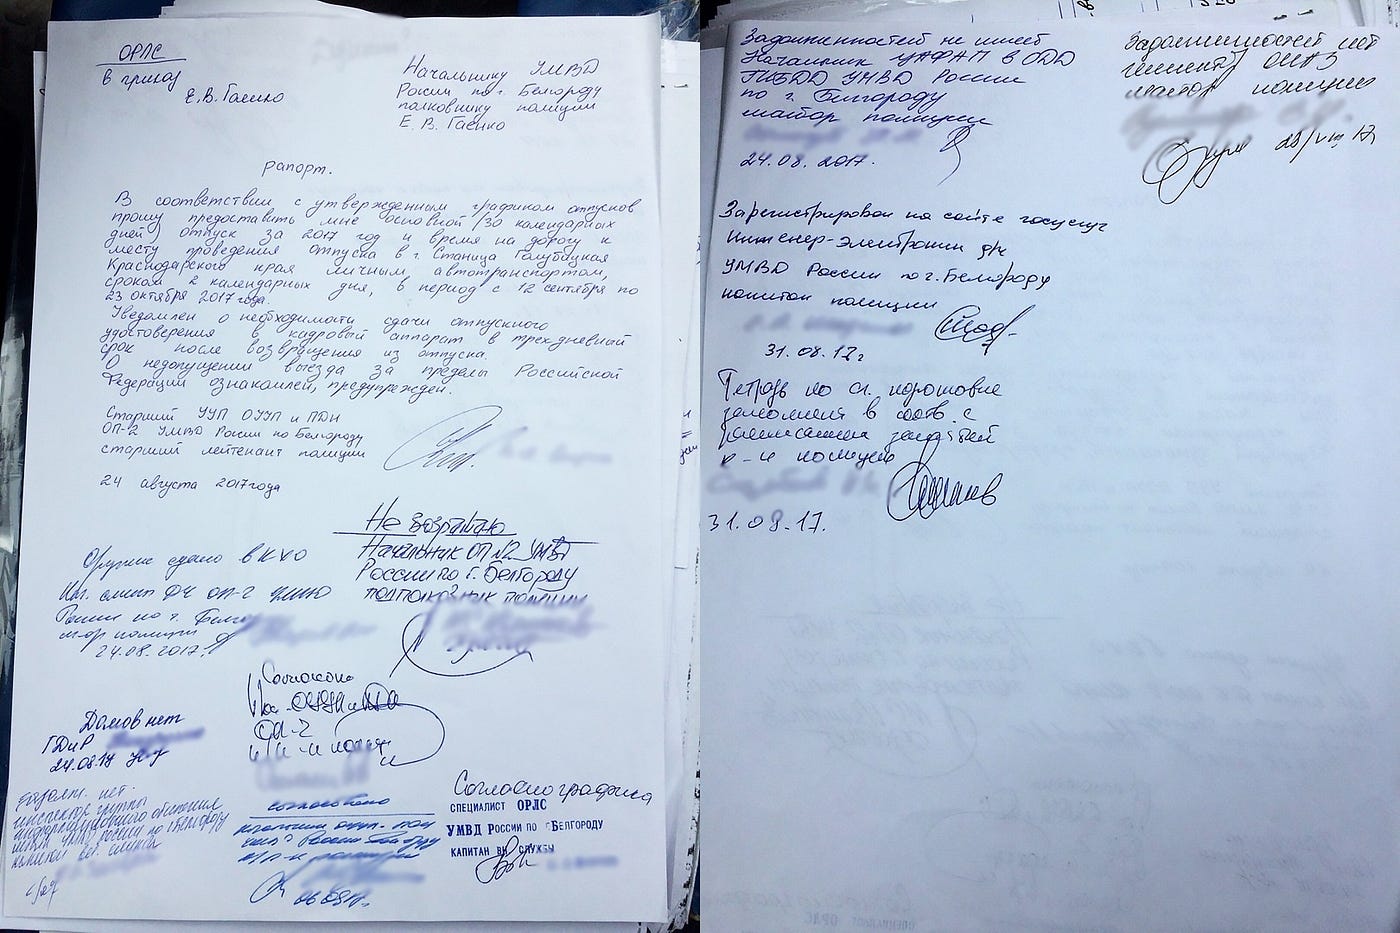 ОРЛС
В приказ
Е.В. Гаенко
Начальнику УМВД
России по г. Белгороду
полковнику полиции
Е. В. Гаенко
рапорт.
В соответствии с утвержденным графиком отпусков
прошу предоставить мне основной (30 календарных
дней) отпуск за 2017 год и время на дорогу к
месту проведения отпуска в г. Станица Голубицкая
Краснодарского края личным автотранспортом,
сроком 2 календарных дня, в период с 12 сентября по
23 октября 2017 года.
Уведомлен о необходимости сдачи отпускного
удостоверения в кадровый аппарат в трехдневный
срок после возвращения из отпуска.
О недопущении выезда за пределы Российской
Федерации ознакомлен, предупрежден.
Старший УУП ОУУП и ПДН
ОП-2 УМВД России по г. Белгороду
старший лейтенант полиции
24 августа 2017 года
Не возражаю
Начальник ОП №2 УМВД
России по г. Белгороду
подполковник полиции
Оружие сдано в КХО
ДЧ ОП-2 УМВД
России по г.
м-ор полиции
24.08.2017г.
Согласовано
ОП-2
Долгов нет
ГДиР
24.08.17
нет.
инспектор группы
информационного обеспечения
УМВД России по г. Белгороду
согласовано
России
06.09.17г.
Согласно графика
СПЕЦИАЛИСТ ОРЛС
УМВД РОССИИ ПО Г БЕЛГОРОДУ
КАПИТАН ВН СЛУЖБЫ
Задолженностей не имеет
Начальник ЦАФАП в ОДД
ГИБДД УМВД России
по г. Белгороду
майор полиции
24.08.2017.
Задолженностей нет
ОИАЗ
майор полиции
28/VIII 17
Зарегистрирован на сайте госуслуг
Инженер-электроник
УМВД России по г. Белгороду
капитан полиции
31.08.17г
Тетрадь по сл. подготовке
заполнена в соотв. с
расписанием занятий
полиции
31.08.17.